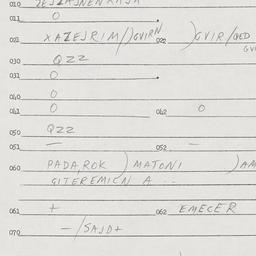 010 ZEJZAJNENRAJA
011 O
021 XAZEJRIM/)GVIRN 022 )GVIR/QED
GVI
030 QZZ
031 O
040 O
041 O 042 O
050 QZZ
051 — 052 —
060 PADA,ROK ) MATONI )AM
GITEREMICN A ...
061 + 062 EMECER
070 —/SAJD+